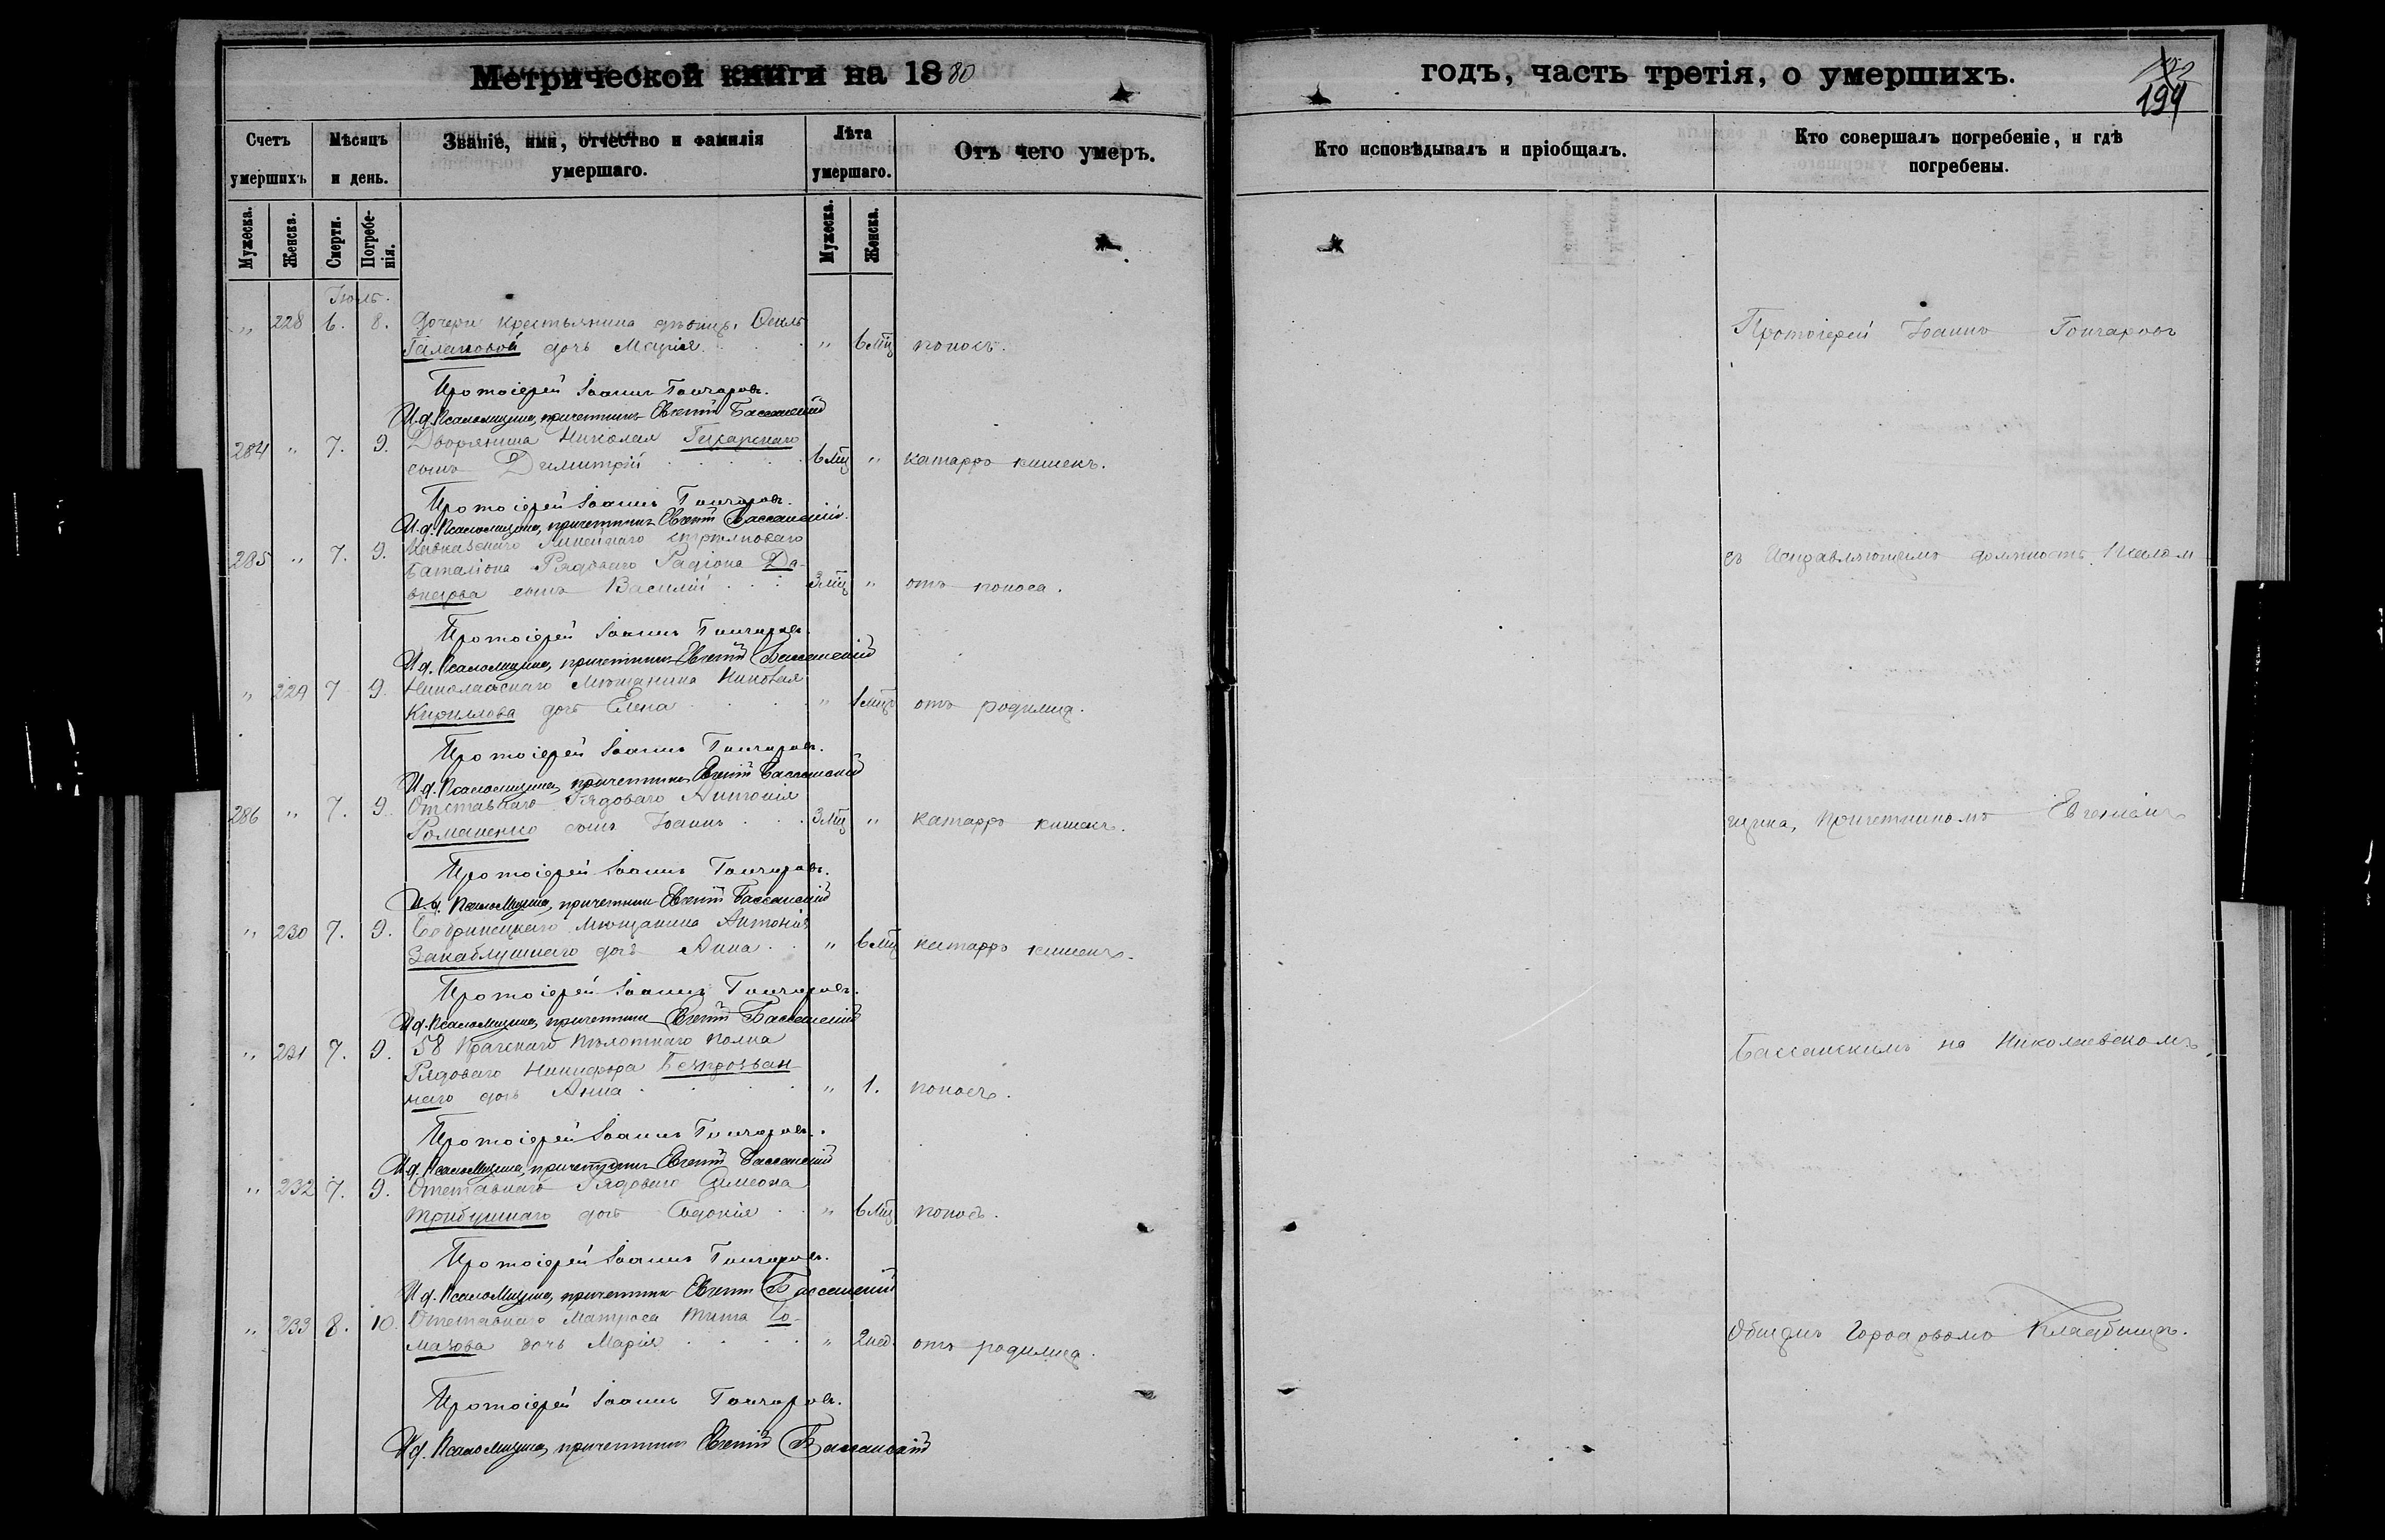 Метрической книги на 1880
годъ, часть третія, о умершихъ.
194
Счетъ умершихъ
Мѣсяцъ и день.
Званіе, имя, отчество и фамилія умершаго.
Лѣта умершаго.
Отъ чего умеръ.
Кто исповѣдывалъ и пріобщалъ.
Кто совершалъ погребеніе, и гдѣ погребены.
Мужеска.
Женска.
Смерти.
Погребе-
нія.
Мужеска.
Женска.
Іюль.
" 228 6. 8. Дочери крестьянина дѣвицы
Галаковой дочь Марія " 6 мц поносъ.
Протоіерей Іоаннъ Гончаровъ.
И. д. Псаломщика, причетникъ Евгеній Бассанскій
284 " 7. 9. Дворянина Николая
сынъ Димитрій 6 мц " катарръ кишекъ.
Протоіерей Іоаннъ Гончаровъ.
И. д. Псаломщика, причетникъ Евгеній Бассанскій
285 " 7. 9. Кавказскаго Линейнаго стрѣлковаго
баталіона Рядоваго Радіона Да-
выдова сынъ Василій 3 мц " отъ поноса.
Протоіерей Іоаннъ Гончаровъ.
И. д. Псаломщика, причетникъ Евгеній Бассанскій
" 229 7 9. Николаевскаго Мѣщанина Николая
Кириллова дочь Елена " 1 мцъ отъ родимца.
Протоіерей Іоаннъ Гончаровъ.
И. д. Псаломщика, причетникъ Евгеній Бассанскій
286 " 7. 9. Отставнаго Рядоваго Антонія
Романенко сынъ Іоаннъ 3 мц " катарръ кишекъ.
Протоіерей Іоаннъ Гончаровъ.
И. д. Псаломщика, причетникъ Евгеній Бассанскій
" 230 7. 9. Бобринецкаго Мѣщанина Антонія
Закаблушнаго дочь Анна " 6 мц катарръ кишекъ.
Протоіерей Іоаннъ Гончаровъ.
И. д. Псаломщика, причетникъ Евгеній Бассанскій
" 231 7. 9. 58 Прагскаго пѣхотнаго полка
Рядоваго Никифора Безпрозван-
наго дочь Анна " 1. поносъ.
Протоіерей Іоаннъ Гончаровъ.
И. д. Псаломщика, причетникъ Евгеній Бассанскій
" 232 7. 9. Отставнаго Рядоваго Симеона
дочь Евдокія " 6 мц поносъ.
Протоіерей Іоаннъ Гончаровъ.
И. д. Псаломщика, причетникъ Евгеній Бассанскій
" 233 8. 10. Отставнаго Матроса Тита
дочь Марія " 2 нед. отъ родимца.
Протоіерей Іоаннъ Гончаровъ.
И. д. Псаломщика, причетникъ Евгеній Бассанскій
Протоіерей Іоаннъ Гончаровъ
съ Исправляющимъ должность Псалом
щика, Причетникомъ Евгеніемъ
Бассанскимъ на Николаевскомъ
Общемъ Городовомъ Кладбищѣ.